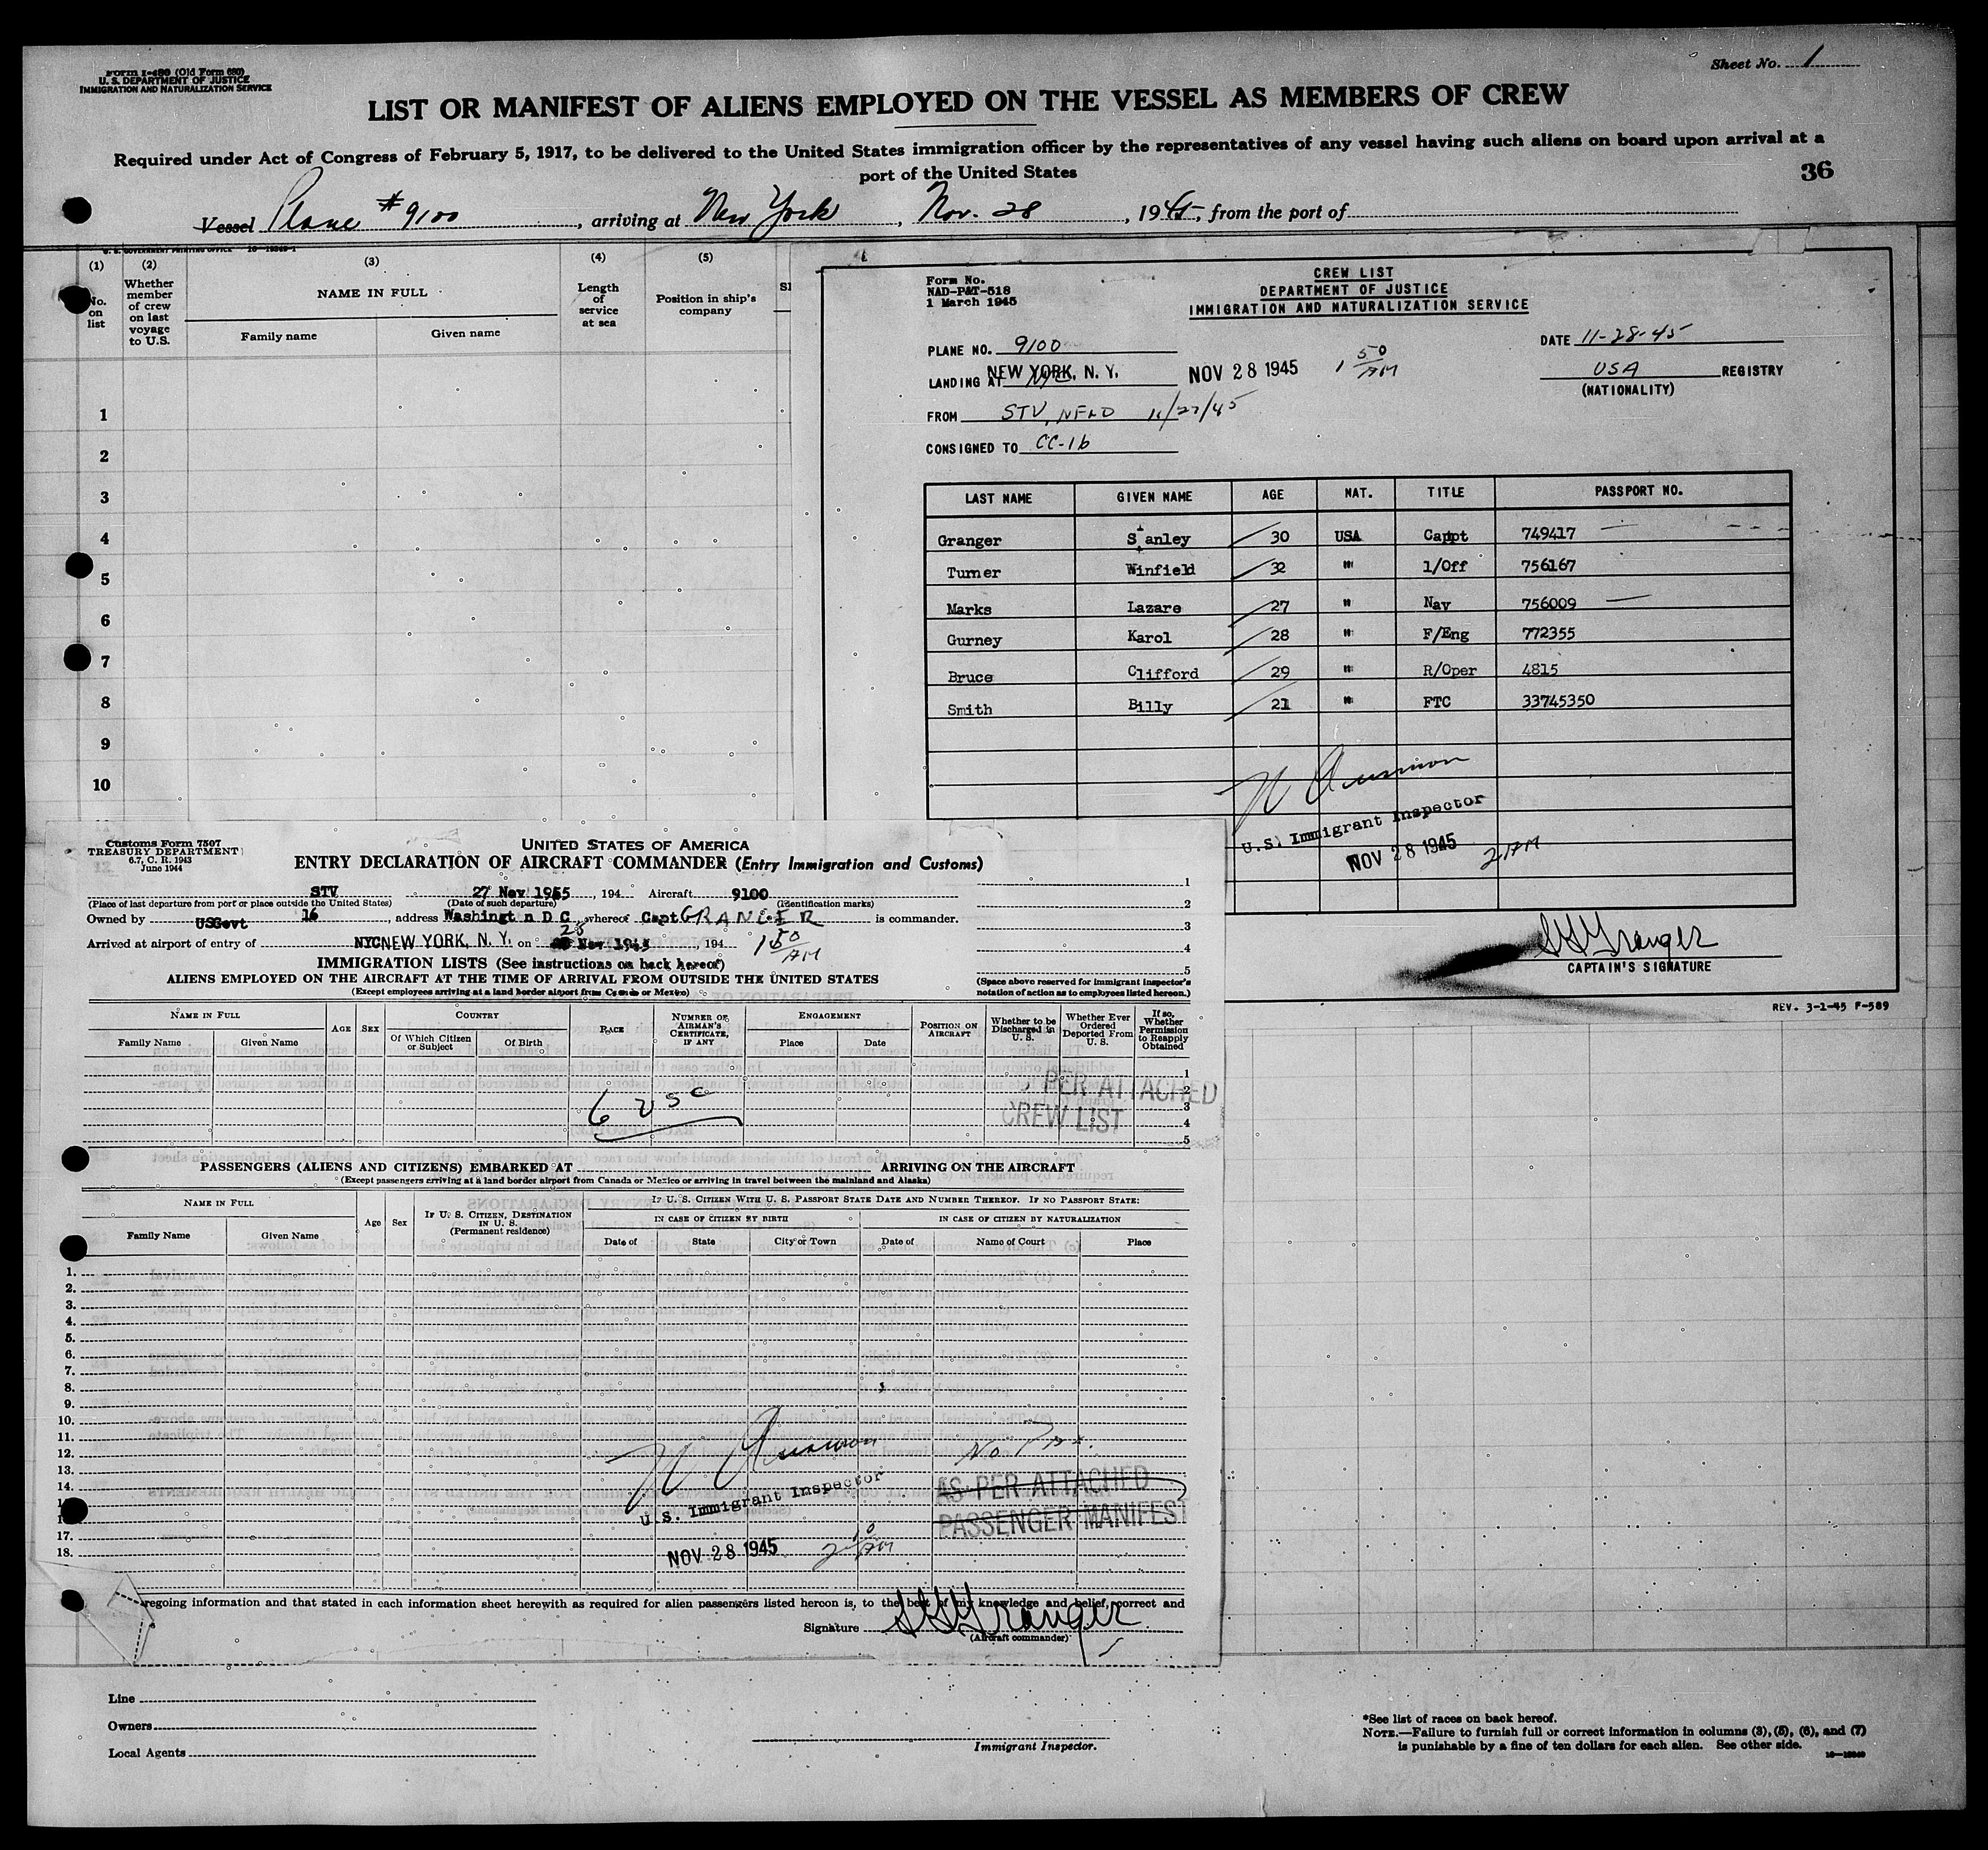 Form I-480 (Old Form 680)
U. S. DEPARTMENT OF JUSTICE
IMMIGRATION AND NATURALIZATION SERVICE
Sheet No. 1
LIST OR MANIFEST OF ALIENS EMPLOYED ON THE VESSEL AS MEMBERS OF CREW
Required under Act of Congress of February 5, 1917, to be delivered to the United States immigration officer by the representatives of any vessel having such aliens on board upon arrival at a
port of the United States
36
Vessel Plane #9100, arriving at New York, Nov. 28, 1945, from the port of
U. S. GOVERNMENT PRINTING OFFICE
(1) (2) (3) (4) (5)
No. on list
Whether member of crew on last voyage to U.S.
NAME IN FULL
Family name Given name
Length of service at sea
Position in ship's company
1
2
3
4
5
6
7
8
9
10
Form No.
NAD-P&T-518
1 March 1945
CREW LIST
DEPARTMENT OF JUSTICE
IMMIGRATION AND NATURALIZATION SERVICE
PLANE NO. 9100
DATE 11-28-45
LANDING AT NYC NEW YORK, N. Y. NOV 28 1945 1 50 AM
USA REGISTRY
(NATIONALITY)
FROM STV, NFLD 11/27/45
CONSIGNED TO CC-16
LAST NAME GIVEN NAME AGE NAT. TITLE PASSPORT NO.
Granger Stanley 30 USA Capt 749417
Turner Winfield 32 " 1/Off 756167
Marks Lazare 27 " Nav 756009
Gurney Karol 28 " F/Eng 772355
Bruce Clifford 29 " R/Oper 4815
Smith Billy 21 " FTC 33745350
U.S. Immigrant Inspector
NOV 28 1945 2 AM
S S Granger
CAPTAIN'S SIGNATURE
REV. 3-1-45 F-589
Customs Form 7507
TREASURY DEPARTMENT
6.7, C. R. 1943
June 1944
UNITED STATES OF AMERICA
ENTRY DECLARATION OF AIRCRAFT COMMANDER (Entry Immigration and Customs)
STV 27 Nov 1945, 194 Aircraft 9100
(Place of last departure from port or place outside the United States) (Date of such departure) (Identification marks)
Owned by USGovt 16, address Washingt n D C, whereof Capt GRANGER is commander.
Arrived at airport of entry of NYC NEW YORK, N. Y. on 28 Nov 1945, 194 1 50 AM
IMMIGRATION LISTS (See instructions on back hereof)
ALIENS EMPLOYED ON THE AIRCRAFT AT THE TIME OF ARRIVAL FROM OUTSIDE THE UNITED STATES
(Except employees arriving at a land border airport from Canada or Mexico)
1
2
3
4
5
(Space above reserved for immigrant inspector's
notation of action as to employees listed hereon.)
NAME IN FULL
Family Name Given Name
AGE SEX
COUNTRY
Of Which Citizen or Subject Of Birth
RACE
NUMBER OF AIRMAN'S CERTIFICATE, IF ANY
ENGAGEMENT
Place Date
POSITION ON AIRCRAFT
Whether to be Discharged in U. S.
Whether Ever Ordered Deported From U. S.
If so, Whether Permission to Reapply Obtained
1
2
3
4
5
6 USC
PER ATTACHED
CREW LIST
PASSENGERS (ALIENS AND CITIZENS) EMBARKED AT ARRIVING ON THE AIRCRAFT
(Except passengers arriving at a land border airport from Canada or Mexico or arriving in travel between the mainland and Alaska)
NAME IN FULL
Family Name Given Name
Age Sex
IF U. S. CITIZEN, DESTINATION IN U. S.
(Permanent residence)
IF U. S. CITIZEN WITH U. S. PASSPORT STATE DATE AND NUMBER THEREOF. IF NO PASSPORT STATE:
IN CASE OF CITIZEN BY BIRTH IN CASE OF CITIZEN BY NATURALIZATION
Date of State City or Town Date of Name of Court Place
1.
2.
3.
4.
5.
6.
7.
8.
9.
10.
11.
12.
13.
14.
17.
18.
No Pass.
AS PER ATTACHED
PASSENGER MANIFEST
U. S. Immigrant Inspector
NOV 28 1945 2 10 AM
regoing information and that stated in each information sheet herewith as required for alien passengers listed hereon is, to the best of my knowledge and belief, correct and
Signature S S Granger
(Aircraft commander)
Line
Owners
Local Agents
Immigrant Inspector.
*See list of races on back hereof.
NOTE.—Failure to furnish full or correct information in columns (3), (5), (6), and (7)
is punishable by a fine of ten dollars for each alien. See other side.